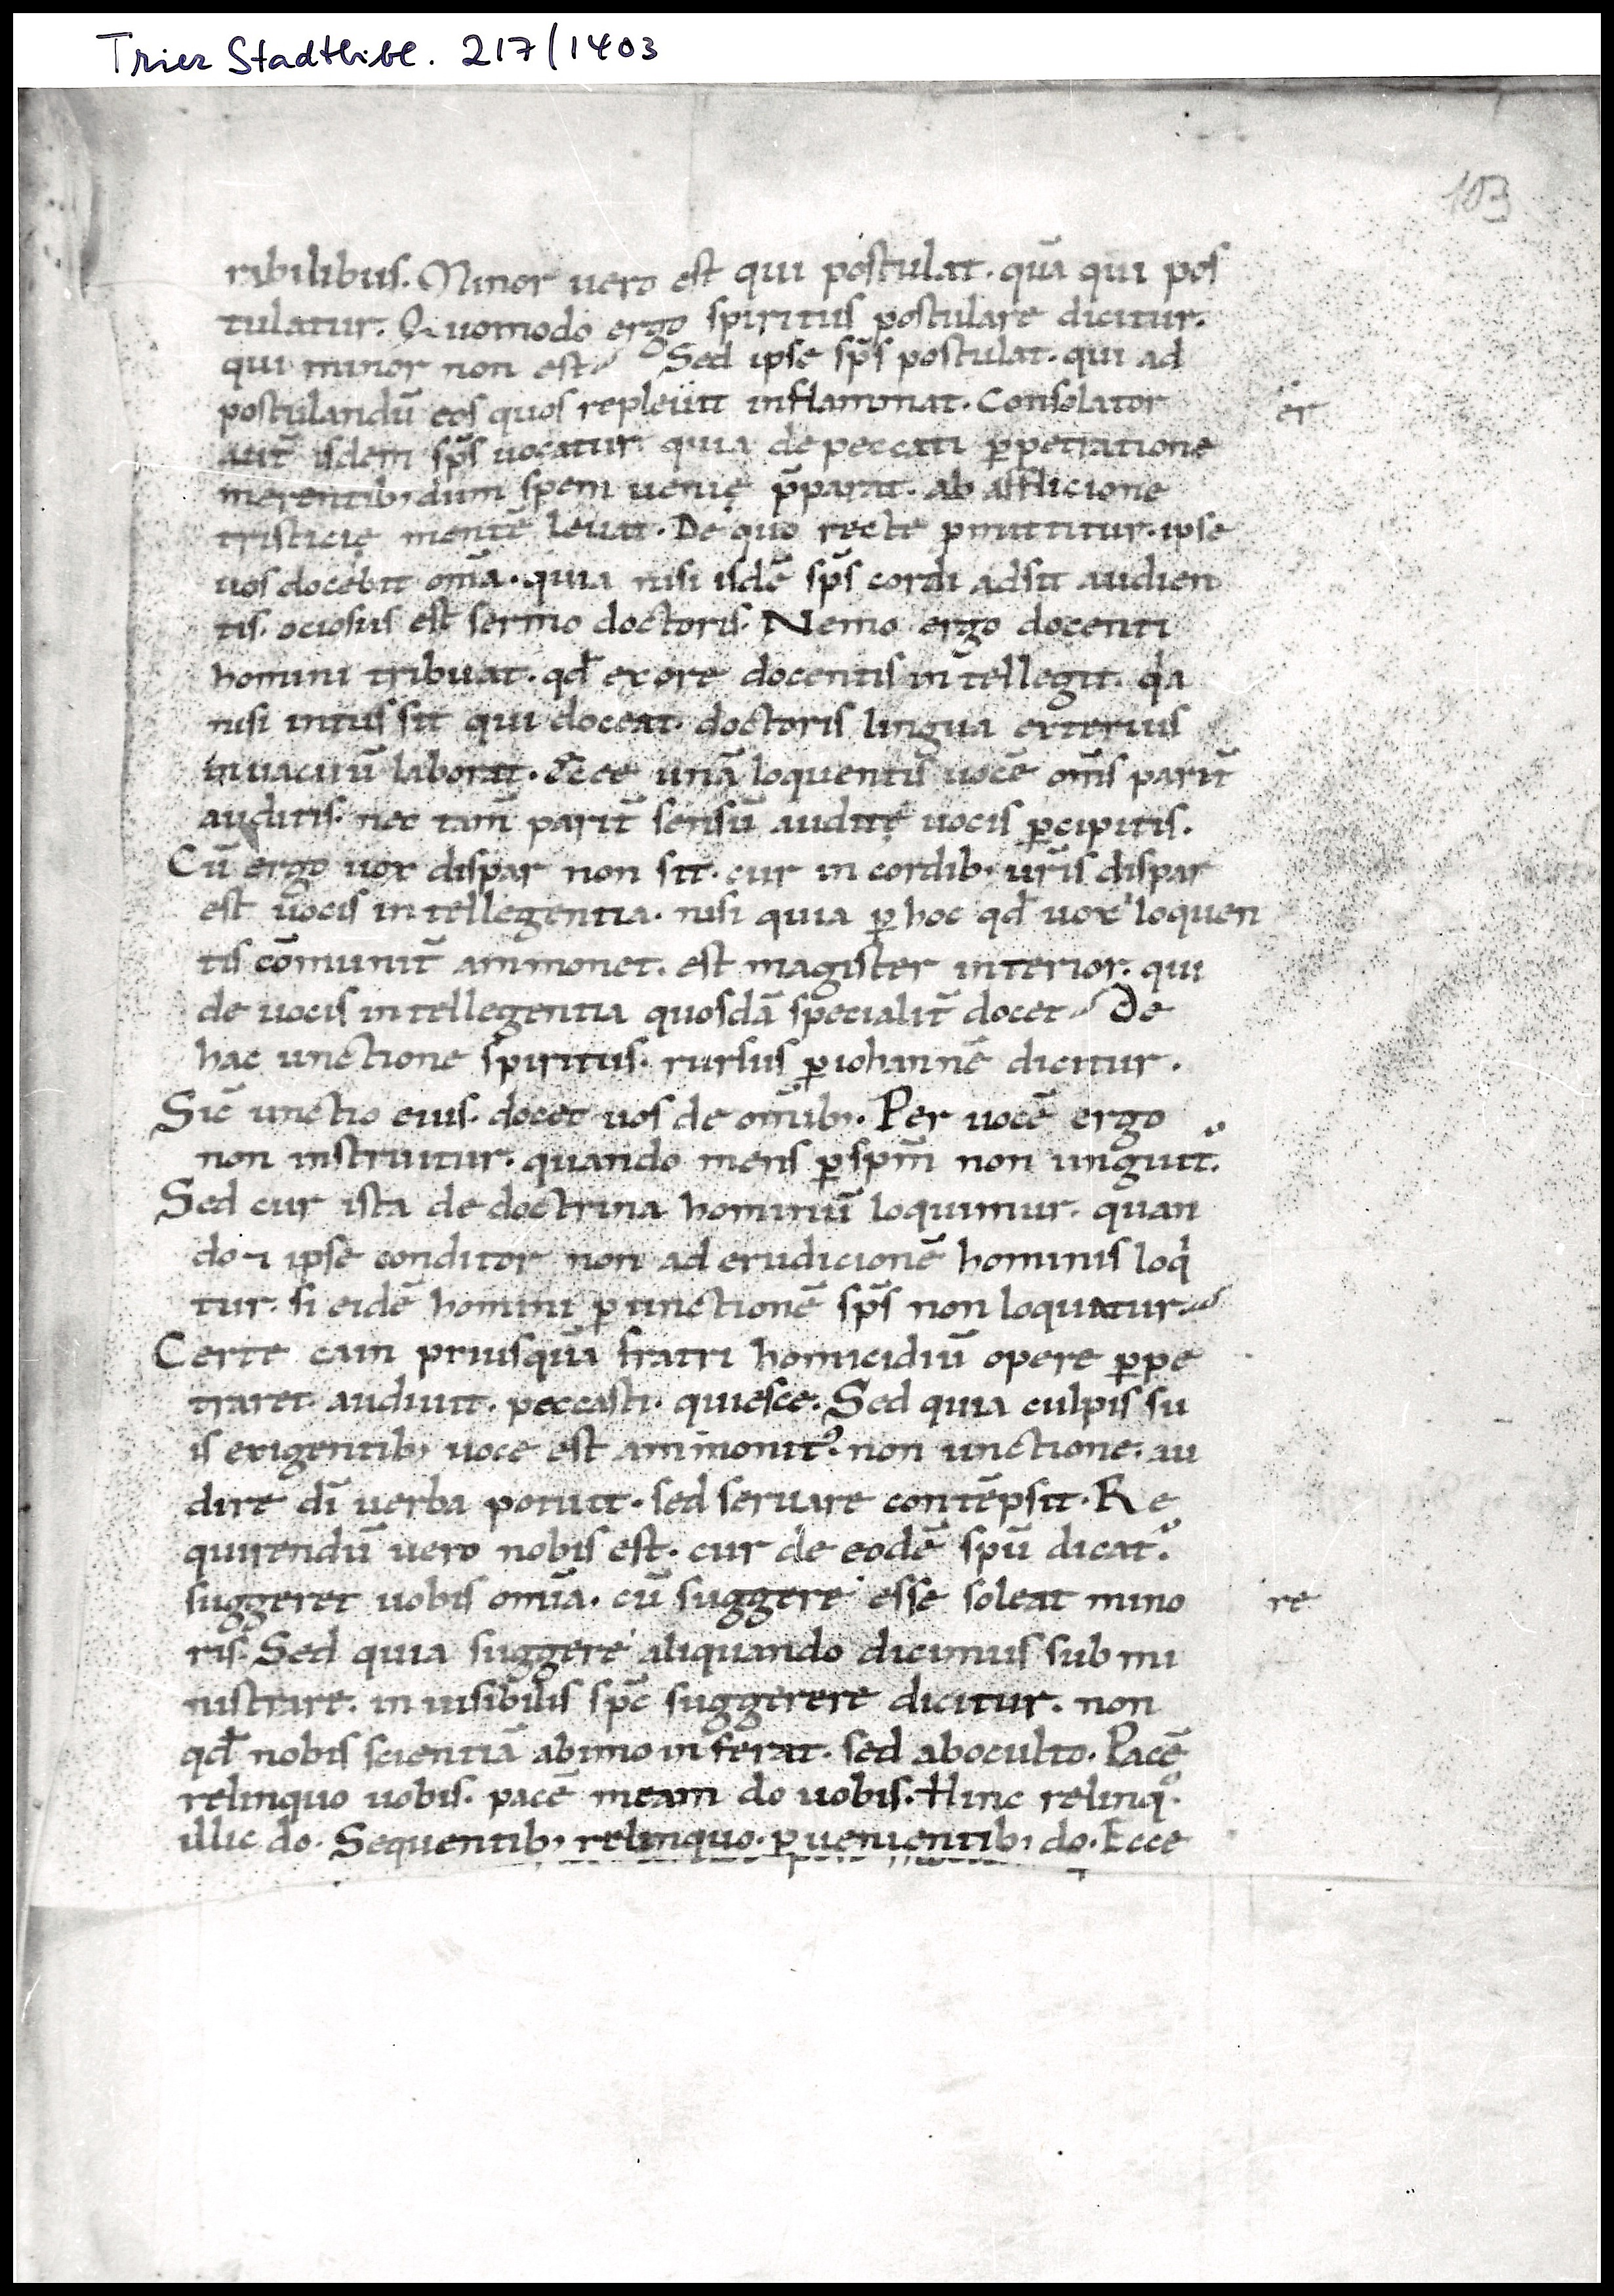 Trier Stadtbibl. 217/1403
103
ribilibus. Minor uero est qui postulat. quā qui pos
tulatur. Quomodo ergo spiritus postulare dicitur.
qui minor non est? Sed ipse sp̄s postulat. qui ad
postulandū eos quos repleuit inflammat. Consolator
er
aut̄ isdem sp̄s uocatur. quia de peccati ꝑpetratione
merentib; dum spem uenię p̄parat. ab afflicione
tristicię mentē leuat. De quo recte ꝓmittitur. ipse
uos docebit om̄a. quia nisi isdē sp̄s cordi adsit audien
tis. ociosus est sermo doctoris. Nemo ergo docenti
homini tribuat. qd̄ ex ore docentis intellegit. qͥa
nisi intus sit qui doceat. doctoris lingua exterius
in uacuū laborat. Ecce unā loquentis uocē om̄s parit̄
auditis. nec tam̄ parit̄ sensū auditę uocis ꝑcipitis.
Cū ergo uox dispar non sit. cur in cordib; ur̄is dispar
est uocis intellegentia. nisi quia ꝑ hoc qd̄ uox loquen
tis cōmunit̄ ammonet. est magister interior. qui
de uocis intellegentia quosdā specialit̄ docet? De
hac unctione spiritus. rursus ꝑ iohannē dicitur.
Sic̄ unctio eius. docet uos de om̄ib;. Per uocē ergo
non instruitur. quando mens ꝑ sp̄m non unguit̄.
Sed cur ista de doctrina hominū loquimur. quan
do ⁊ ipse conditor non ad erudicionē hominis loqͥ
tur. si eidē homini ꝑ unctionē sp̄s non loquatur?
Certe cain priusquā fratri homicidiū opere ꝑpe
traret. audiuit. peccasti. quiesce. Sed quia culpis su
is exigentib; uoce est ammonitꝰ. non unctione. au
dire dī uerba potuit. sed seruare contēpsit. Re
quirendū uero nobis est. cur de eodē spū dicat̄.
suggeret uobis om̄ia. cū suggere esse soleat mino
re
ris. Sed quia suggere aliquando dicimus submi
nistrare. inuisibilis sp̄c suggerere dicitur. non
qd̄ nobis scientiā ab imo inferat. sed ab oculto. Pacē
relinquo uobis. pacē meam do uobis. Hinc relinqͦ.
illic do. Sequentib; relinquo. ꝑuenientib; do. Ecce